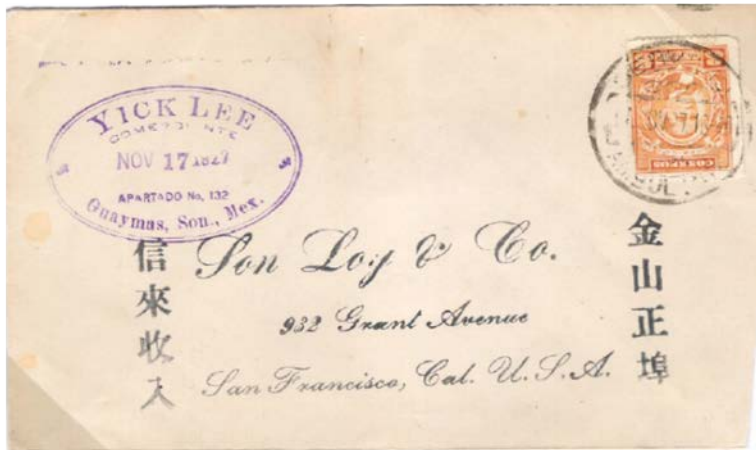 YICK LEE
COMERCIANTE
NOV 17 1927
APARTADO No. 132
Guaymas, Son., Mex.
CORREOS
金山正埠
信來收入
Son Loy & Co.
932 Grant Avenue
San Francisco, Cal. U.S.A.